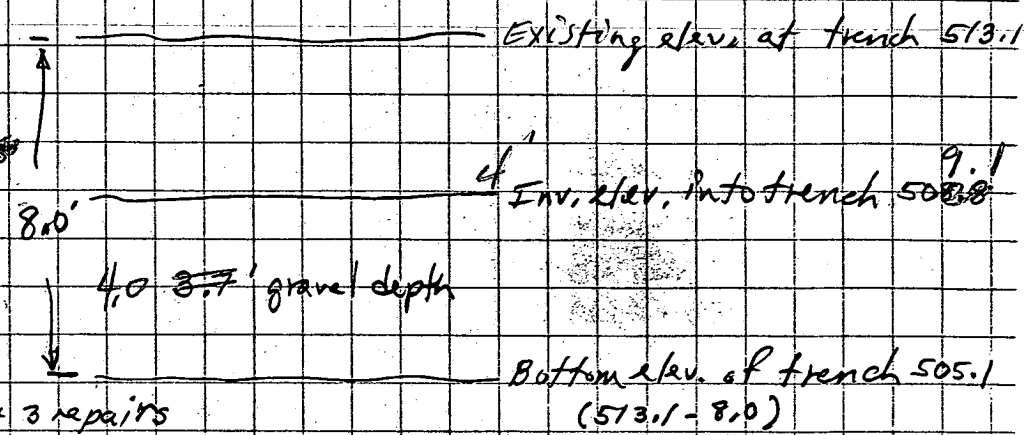 Existing elev. at trench 513.1
9.1
4' Inv. elev. into trench 508.8
8.0'
4.0 3.7' gravel depth
Bottom elev. of trench 505.1
3 repairs (513.1 - 8.0)